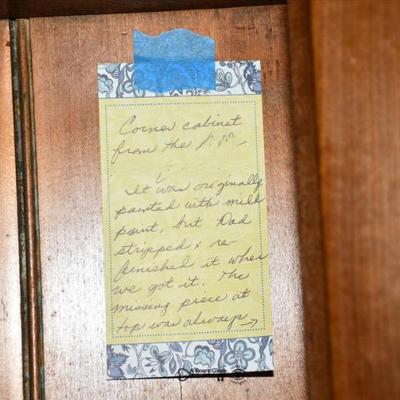 Corner cabinet
from the
It was originally
painted with milk
paint, but Dad
stripped & re-
finished it when
we got it. The
missing piece at
top was always →